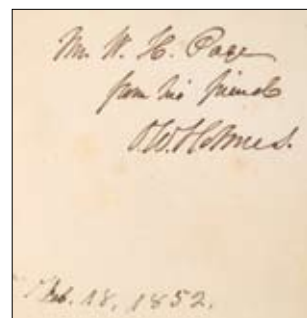 Mr. W. H. Page
from his friend
O. W. Holmes.
Feb. 18, 1852.